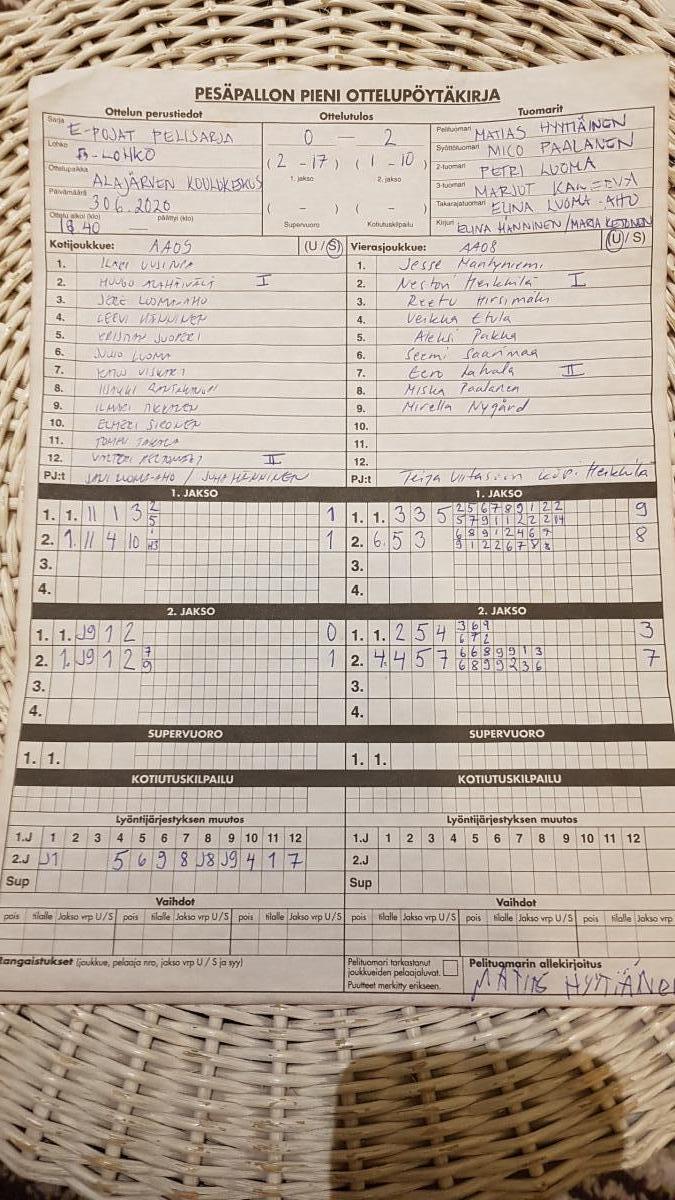 PESÄPALLON PIENI OTTELUPÖYTÄKIRJA
Ottelun perustiedot Ottelutulos Tuomarit
Sarja E-POJAT PELISARJA
Lohko B-LOHKO
Ottelupaikka ALAJÄRVEN KOULUKESKUS
Päivämäärä 30.6.2020
Ottelu alkoi (klo) 18.40 päättyi (klo) —
0 — 2
(2 - 17) (1 - 10)
1. jakso 2. jakso
( - ) ( - )
Supervuoro Kotiutuskilpailu
Pelituomari MATIAS HYYTIÄINEN
Syöttötuomari MICO PAALANEN
2-tuomari PETRI LUOMA
3-tuomari MARJUT
Takarajatuomari ELINA LUOMA-AHO
Kirjuri ELINA HÄNNINEN / MARIA KETONEN
Kotijoukkue: AA09 (U/S) Vierasjoukkue: AA08 (U/S)
1. ILARI UUSINPA
2. ALAHÄIVÄLÄ I
3. JERE LUOMA-AHO
4. LEEVI HÄNNINEN
5. KRISTIAN
6. JUHO LUOMA
7.
8.
9. ILMARI
10. ELMERI SIRONEN
11. TOMMI
12. VALTTERI II
PJ:t JANI LUOMA-AHO / JUHA HÄNNINEN
1. Jesse Mäntyniemi
2. Nestori Heikkilä I
3. Reetu Hirsimäki
4. Veikka Etula
5. Aleksi Pakka
6. Seemi Saarimaa
7. Eero Lahala II
8. Miska Paalanen
9. Mirella Nygård
10.
11.
12.
PJ:t Teija Heikkilä
1. JAKSO 1. JAKSO
1. 1. 11 1 3 2 5 1
2. 1. 11 4 10 1
3.
4.
1. 1. 3 3 5 2 5 6 7 8 9 1 2 2 9
5 7 9 1 1 2 2 2
2. 6. 5 3 6 8 9 1 2 4 6 7 8
9 1 2 2 6 7 8
3.
4.
2. JAKSO 2. JAKSO
1. 1. J9 1 2 0
2. 1. J9 1 2 7 9 1
3.
4.
1. 1. 2 5 4 3 6 9 3
6 7 2
2. 4. 4 5 7 6 6 8 9 9 1 3 7
6 8 9 9 2 3 6
3.
4.
SUPERVUORO SUPERVUORO
1. 1. 1. 1.
KOTIUTUSKILPAILU KOTIUTUSKILPAILU
Lyöntijärjestyksen muutos Lyöntijärjestyksen muutos
1.J 1 2 3 4 5 6 7 8 9 10 11 12 1.J 1 2 3 4 5 6 7 8 9 10 11 12
2.J J1 5 6 9 8 J8 J9 4 1 7 2.J
Sup Sup
Vaihdot Vaihdot
pois tilalle Jakso vrp U/S pois tilalle Jakso vrp U/S pois tilalle Jakso vrp U/S pois tilalle Jakso vrp U/S pois tilalle Jakso vrp U/S pois tilalle Jakso vrp
Rangaistukset (joukkue, pelaaja nro, jakso vrp U/S ja syy)
Pelituomari tarkastanut
joukkueiden pelaajaluvat.
Puutteet merkitty erikseen.
Pelituomarin allekirjoitus
MATIAS HYYTIÄINEN